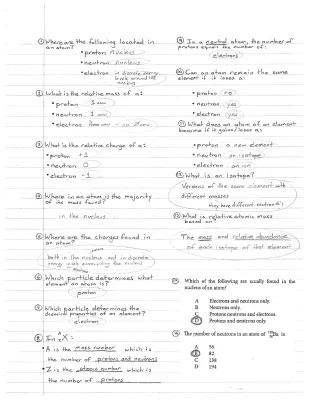 ① Where are the following located in
an atom?
• proton nucleus
• neutron nucleus
• electron in discrete energy
levels around the
nucleus
② What is the relative mass of a:
• proton 1 amu
• neutron 1 amu
• electron
③ What is the relative charge of a:
• proton +1
• neutron 0
• electron -1
④ Where in an atom is the majority
of its mass found?
in the nucleus
⑤ Where are the charges found in
an atom?
both in the nucleus and in discrete
energy levels surrounding the nucleus
⑥ Which particle determines what
element an atom is?
proton
⑦ Which particle determines the
chemical properties of an element?
electron
⑧ In A Z X:
• A is the mass number which is
the number of protons and neutrons
• Z is the atomic number which is
the number of protons
⑨ In a neutral atom, the number of
protons equals the number of:
electrons
⑩ Can an atom remain the same
element if it loses a:
• proton no
• neutron yes
• electron yes
⑪ What does an atom of an element
become if it gains/loses a:
• proton a new element
• neutron an isotope
• electron an ion
⑫ What is an isotope?
Versions of the same element with
different masses
(they have different neutron #'s)
⑬ What is relative atomic mass
based on?
The mass and relative abundance
of each isotope of that element
⑭ Which of the following are usually found in the
nucleus of an atom?
A Electrons and neutrons only.
B Neutrons only.
C Protons neutrons and electrons.
D Protons and neutrons only.
⑮ The number of neutrons in an atom of is
A 56
B 82
C 138
D 194